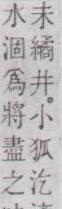 未繘井。小狐汔
水涸爲將盡之